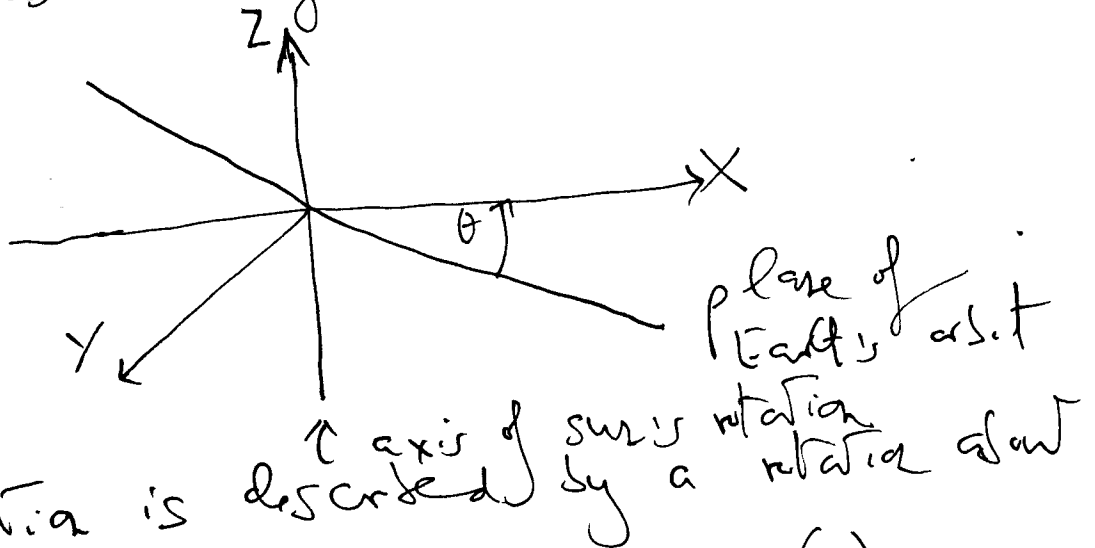 Z
X
θ
Y
Plane of
Earth's orbit
↑ axis of sun's rotation
is described by a rotation about